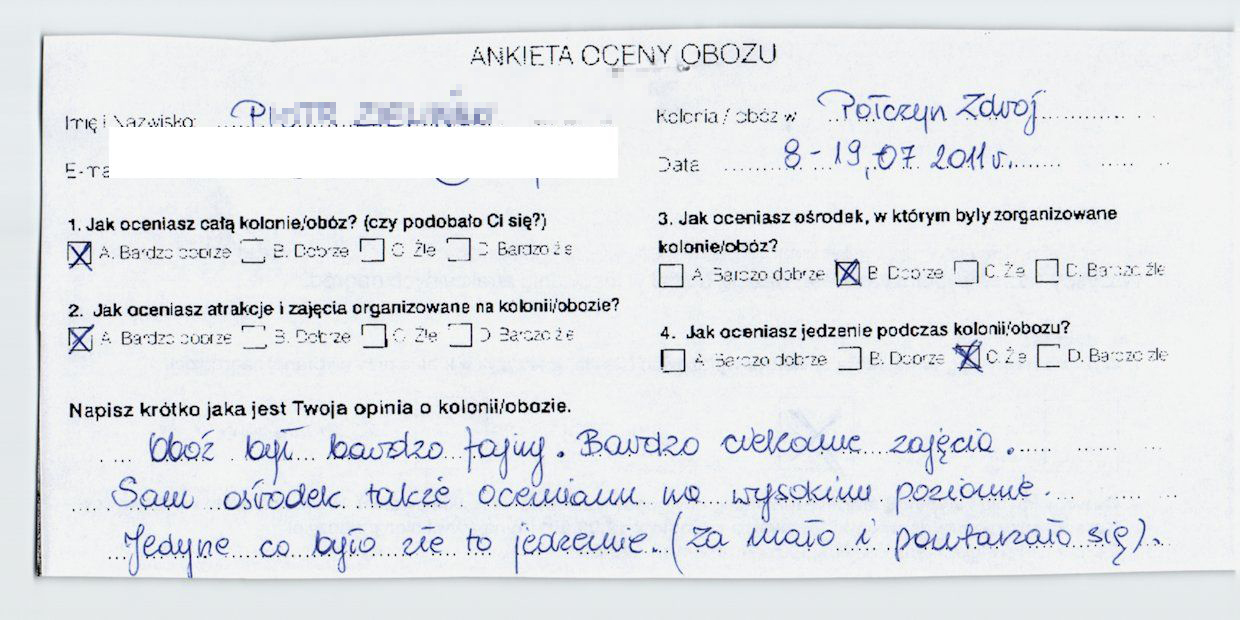 ANKIETA OCENY OBOZU
Imię i Nazwisko: PIOTR
Kolonia / obóz w Połczyn Zdrój
E-ma
Data 8-19,07 2011r.
1. Jak oceniasz całą kolonie/obóz? (czy podobało Ci się?)
A. Bardzo dobrze B. Dobrze C. Źle D. Bardzo źle
2. Jak oceniasz atrakcje i zajęcia organizowane na kolonii/obozie?
A. Bardzo dobrze B. Dobrze C. Źle D. Bardzo źle
3. Jak oceniasz ośrodek, w którym byly zorganizowane
kolonie/obóz?
A. Bardzo dobrze B. Dobrze C. Źle D. Bardzo źle
4. Jak oceniasz jedzenie podczas kolonii/obozu?
A. Bardzo dobrze B. Dobrze C. Źle D. Bardzo źle
Napisz krótko jaka jest Twoja opinia o kolonii/obozie.
Obóz był bardzo fajny. Bardzo ciekawe zajęcia.
Sam ośrodek także oceniam na wysokim poziomie.
Jedyne co było złe to jedzenie. (Za mało i powtarzało się).